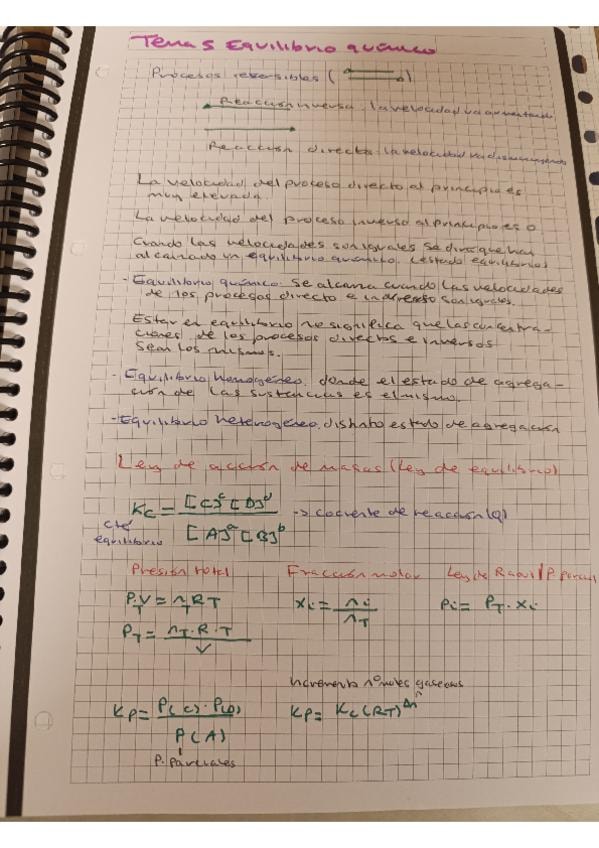 Tema 5 Equilibrio químico
Procesos reversibles ( ⇄ )
Reacción inversa, la velocidad va aumentando
Reacción directa, la velocidad va disminuyendo
La velocidad del proceso directo al principio es
muy elevada.
La velocidad del proceso inverso al principio es 0
Cuando las velocidades son iguales se dice que han
alcanzado un equilibrio químico. (estado equilibrio)
- Equilibrio químico: Se alcanza cuando las velocidades
de los procesos directo e inverso son iguales.
Estar en equilibrio no significa que las concentra-
ciones de los procesos directos e inversos
sean los mismos.
- Equilibrio homogéneo, donde el estado de agrega-
ción de las sustancias es el mismo.
- Equilibrio heterogéneo, distinto estado de agregación
Ley de acción de masas (Ley de equilibrio)
Kc = [C]^c [D]^d / [A]^a [B]^b → cociente de reacción (Q)
cte
equilibrio
Presión total Fracción molar Ley de Raoul / P parcial
P_T·V = n_T RT xi = ni / n_T Pi = P_T · xi
P_T = n_T · R · T / V
Incremento nº moles gaseosos
Kp = P(C) · P(D) / P(A) Kp = Kc (RT)^Δn
P. parciales